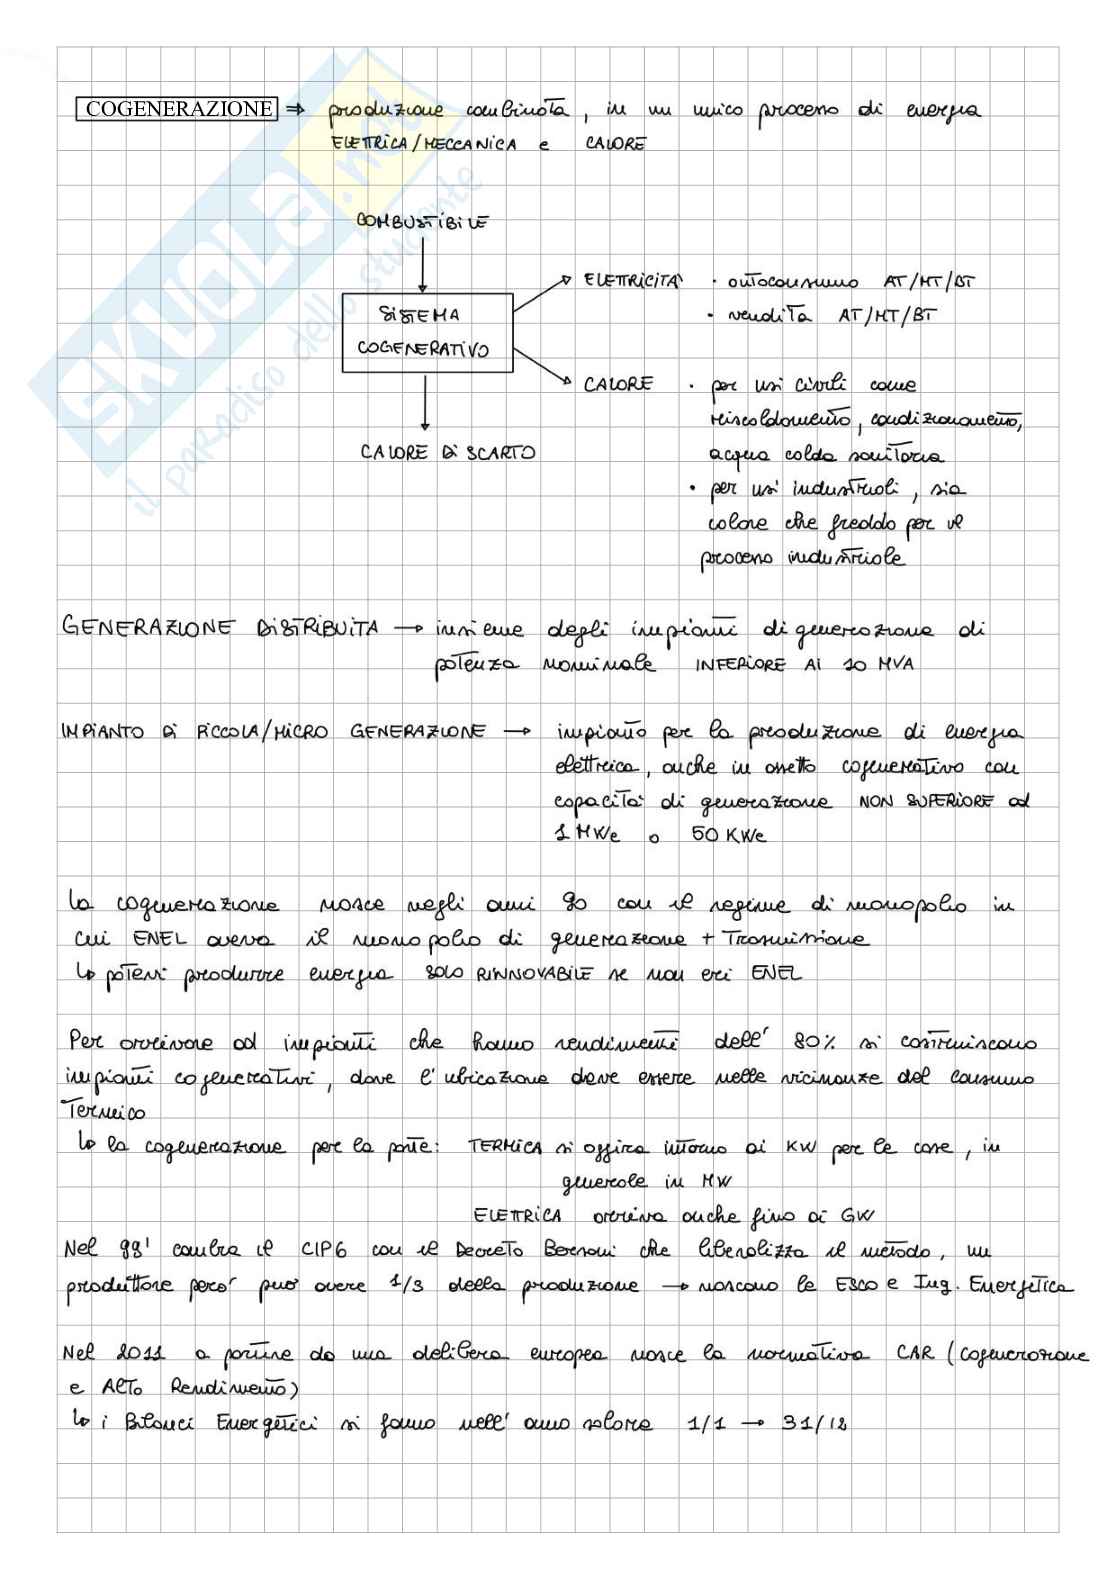 COGENERAZIONE ⇒ produzione combinata, in un unico processo di energia
ELETTRICA/MECCANICA e CALORE
COMBUSTIBILE
SISTEMA
COGENERATIVO
ELETTRICITA' · autoconsumo AT/MT/BT
· vendita AT/MT/BT
CALORE · per usi civili come
riscaldamento, condizionamento,
acqua calda sanitaria
· per usi industriali, sia
calore che freddo per il
processo industriale
CALORE DI SCARTO
GENERAZIONE DISTRIBUITA → insieme degli impianti di generazione di
potenza nominale INFERIORE AI 10 MVA
IMPIANTO DI PICCOLA/MICRO GENERAZIONE → impianto per la produzione di energia
elettrica, anche in assetto cogenerativo con
capacità di generazione NON SUPERIORE ad
1 MWe o 50 KWe
La cogenerazione nasce negli anni 90 con il regime di monopolio in
cui ENEL aveva il monopolio di generazione + Trasmissione
↳ potevi produrre energia SOLO RINNOVABILE se non eri ENEL
Per arrivare ad impianti che hanno rendimenti dell' 80% si costruiscono
impianti cogenerativi, dove l'ubicazione deve essere nelle vicinanze del consumo
Termico
↳ la cogenerazione per la parte: TERMICA si aggira intorno ai KW per le case, in
generale in MW
ELETTRICA arriva anche fino ai GW
Nel 99' cambia il CIP6 con il Decreto Bersani che liberalizza il metodo, un
produttore però può avere 1/3 della produzione → nascono le ESCo e Ing. Energetica
Nel 2011 a partire da una delibera europea nasce la normativa CAR (Cogenerazione
e Alto Rendimento)
↳ i Bilanci Energetici si fanno nell' anno solare 1/1 → 31/12
SKUOLA.net
il paradiso dello studente